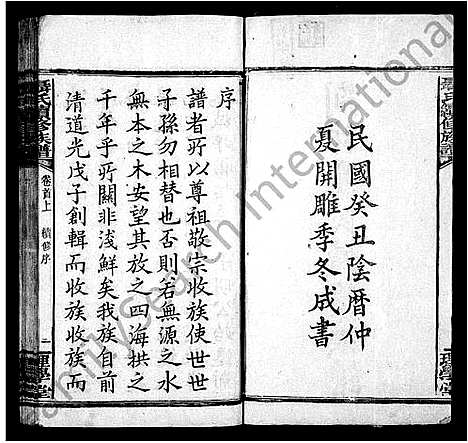 民國癸丑陰曆仲
夏開雕季冬成書
序
譜者所以尊祖敬宗收族使世世
子孫勿相替也否則若無源之水
無本之木安望其放之四海拱之
千年乎所關非淺鮮矣我族自前
清道光戊子創輯而收族收族而
氏續修族譜
卷首上
續修序
二
理學堂
FamilySearch International